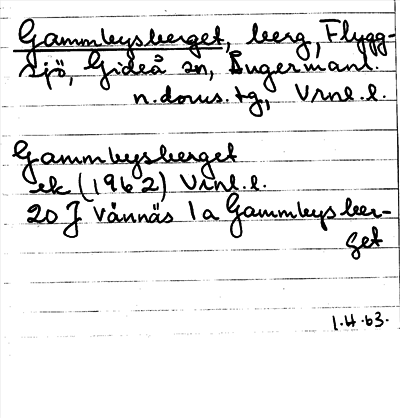 Gammbysberget, berg, Flygg-
sjö, Gideå sn, Ångermanl.
n.doms.tg, Vrnl.l.
Gammbysberget
ek (1962) Vrnl.l.
20 J Vännäs 1a Gammbysber-
get
1.4.63.